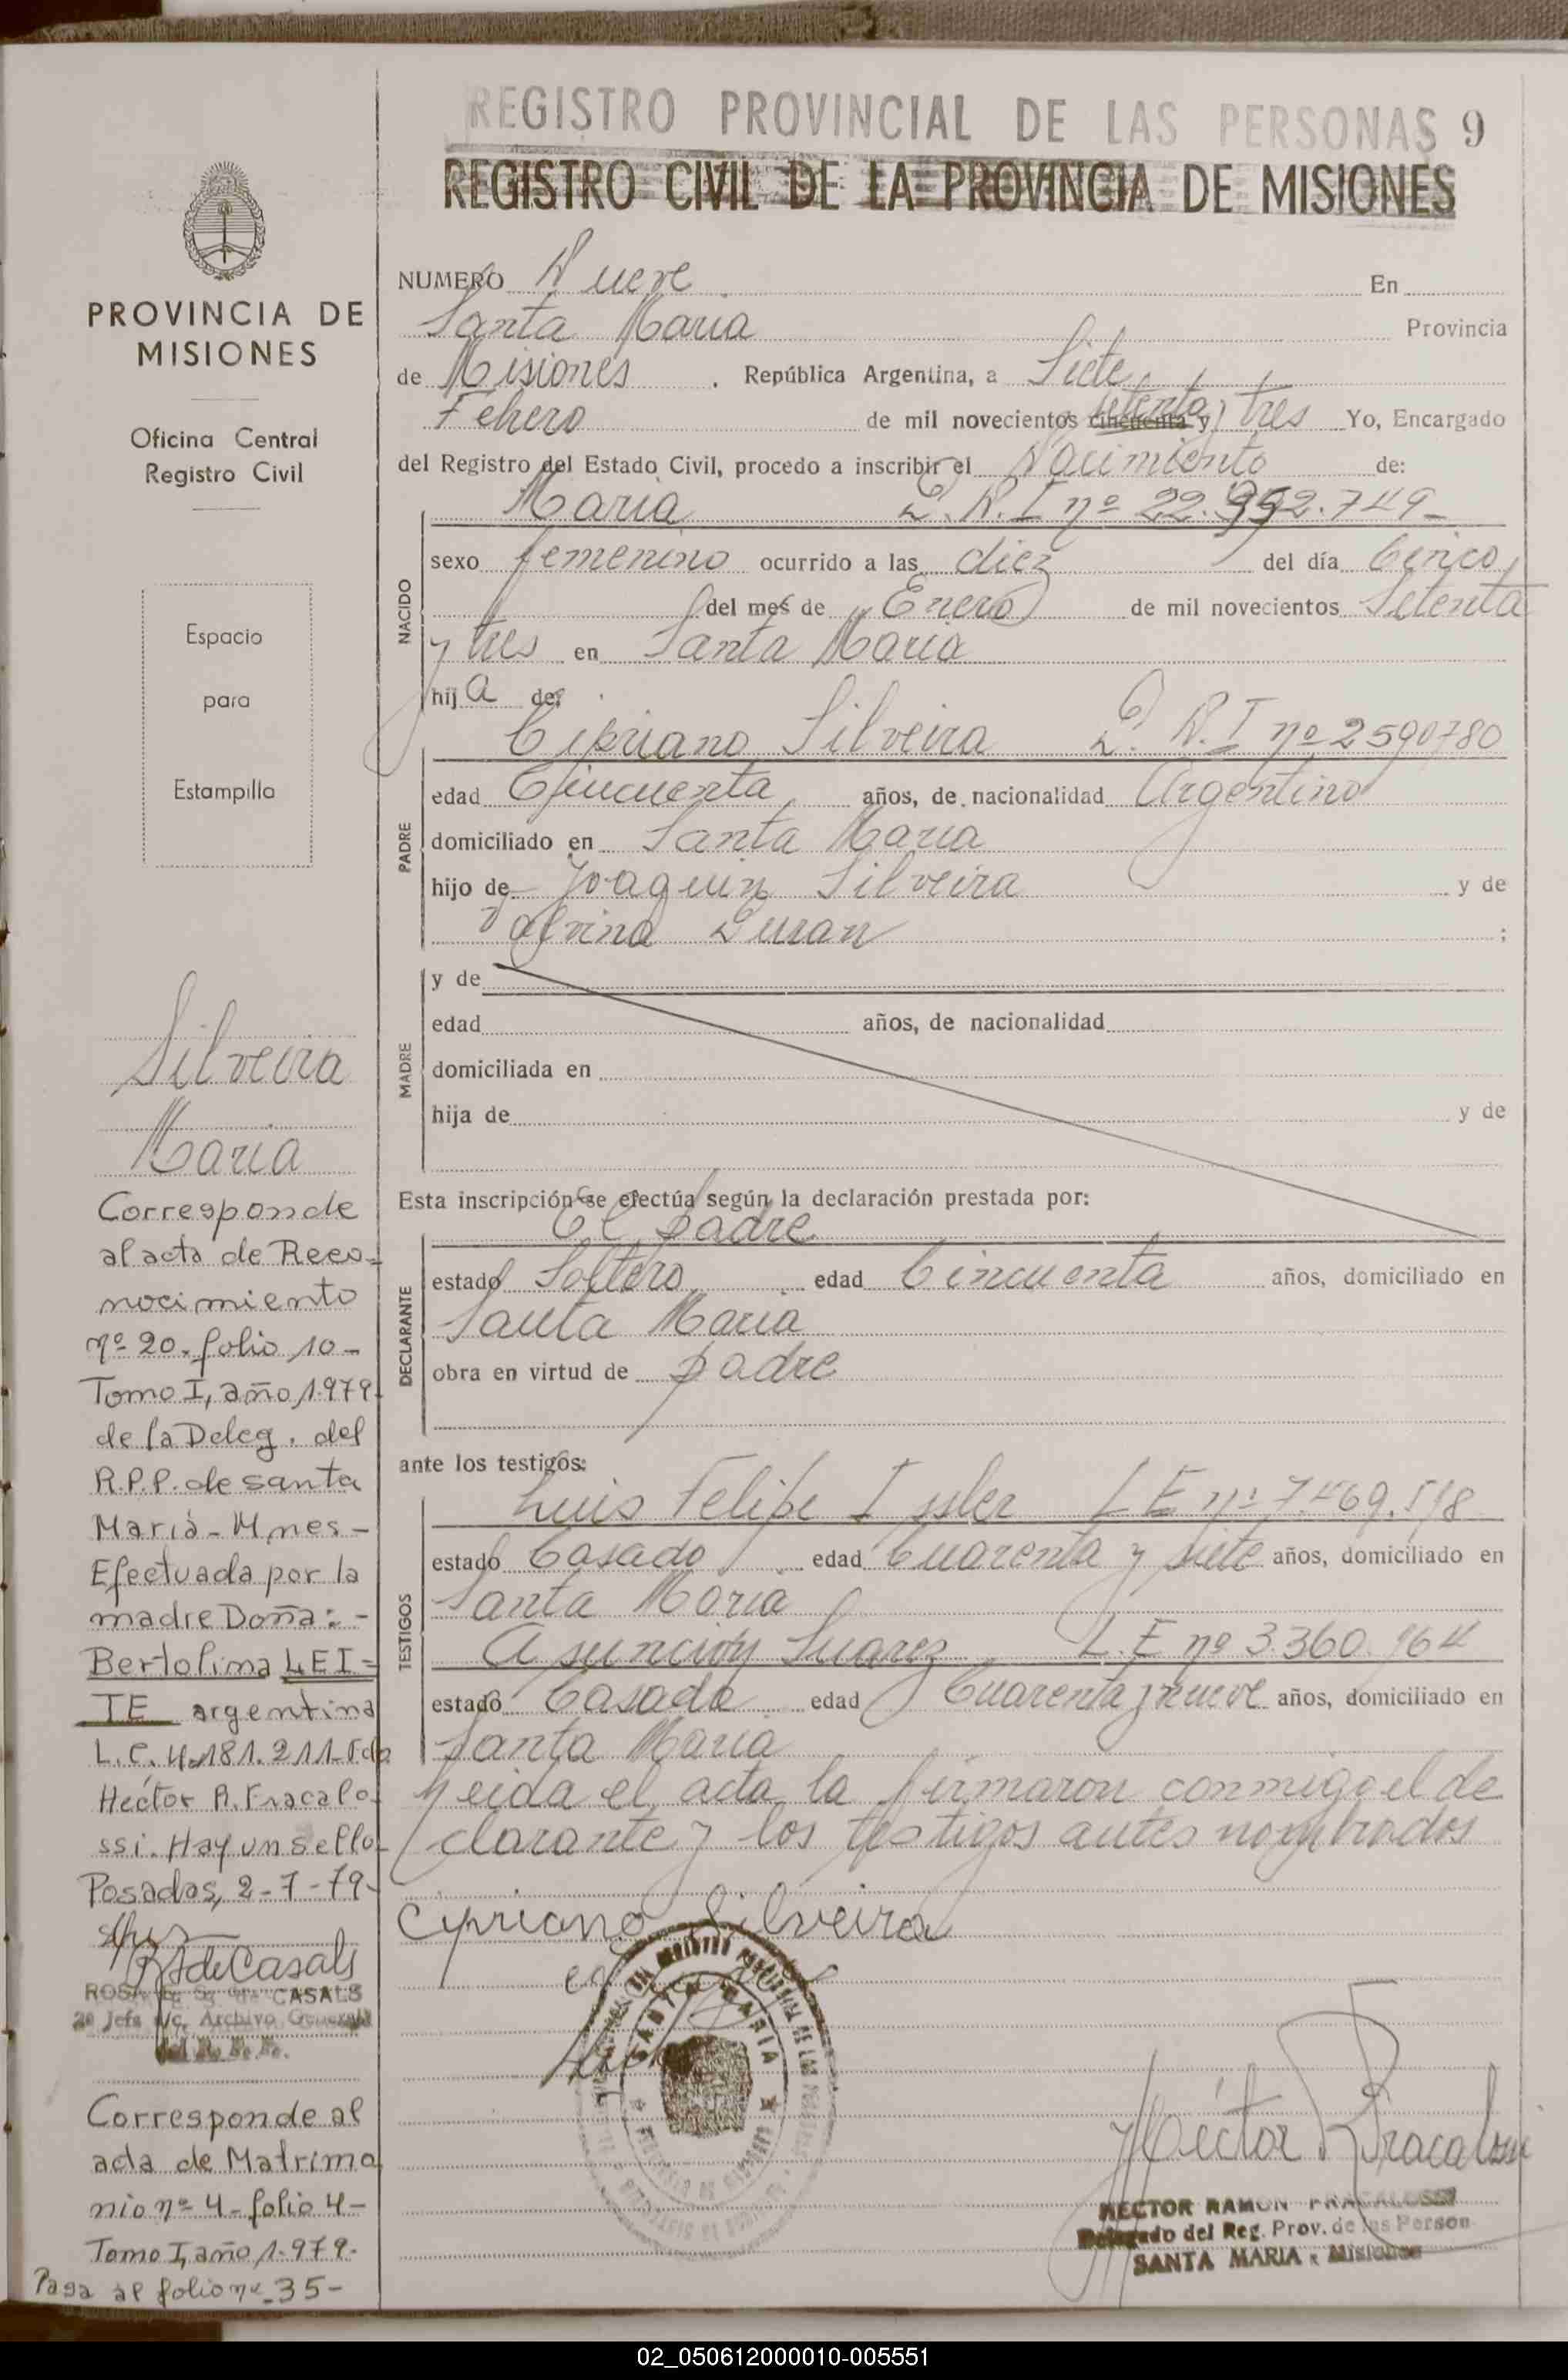 REGISTRO PROVINCIAL DE LAS PERSONAS 9
REGISTRO CIVIL DE LA PROVINCIA DE MISIONES
PROVINCIA DE
MISIONES
Oficina Central
Registro Civil
Espacio
para
Estampilla
Silveira
Maria
Corresponde
al acta de Reco-
nocimiento
nº 20. folio 10-
Tomo I, año 1.979.
de la Deleg. del
R.P.P. de santa
María - Mnes -
Efectuada por la
madre Doña: -
Bertolina LEI-
TE argentina
L.C. 4.181.211- Fdo
Héctor R. Fracalo-
ssi. Hay un sello
Posadas, 2-7-79-
RSdeCasals
ROSA E. S. de CASALS
2º Jefe a/c. Archivo General
del R. P. P.
Corresponde al
acta de Matrimo
nio nº 4 - folio 4 -
Tomo I, año 1.979.
Pasa al folio nº 35-
NUMERO Nueve En
Santa Maria Provincia
de Misiones . República Argentina, a Siete
Febero de mil novecientos cincuenta y setenta y tres Yo, Encargado
del Registro del Estado Civil, procedo a inscribir el Nacimiento de:
NACIDO
Maria D.N.I nº 22.992.749-
sexo femenino ocurrido a las diez del día Cinco
del mes de Enero de mil novecientos Setenta
y tres en Santa Maria
hija de:
PADRE
Cipriano Silveira D.N.I nº 2590780
edad Cincuenta años, de nacionalidad Argentino
domiciliado en Santa Maria
hijo de Joaquin Silveira y de
Valvina Duran ;
MADRE
y de
edad años, de nacionalidad
domiciliada en
hija de y de
Esta inscripción se efectúa según la declaración prestada por:
DECLARANTE
El padre
estado Soltero edad Cincuenta años, domiciliado en
Santa Maria
obra en virtud de padre
ante los testigos:
TESTIGOS
Luis Felipe Issler L E nº 7.469.518
estado Casado edad Cuarenta y siete años, domiciliado en
Santa Maria
Asuncion Suarez L.E nº 3.360.964
estado Casado edad Cuarenta y nueve años, domiciliado en
Santa Maria
Leida el acta la firmaron conmigo el de
clarante y los testigos antes nombrados
Cipriano Silveira
SANTA MARIA
Héctor R Fracalossi
HECTOR RAMON FRACALOSSI
Delegado del Reg. Prov. de las Person
SANTA MARIA - Misiones
02_050612000010-005551